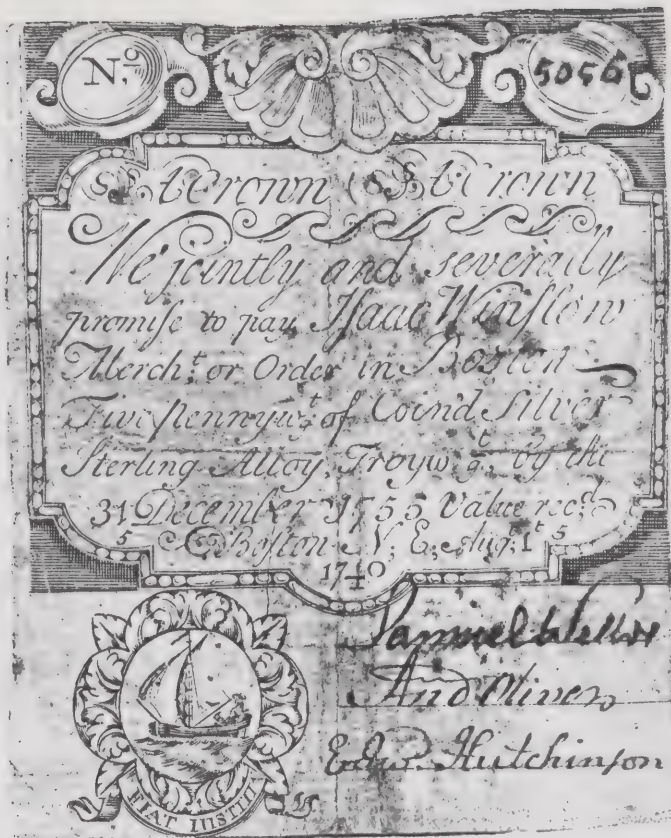 N.o 5056
Crown Crown
We jointly and severally
promise to pay Isaac Winslow
Merch.t or Order in Boston
Five pennyw.t of Coin'd Silver
Sterling Alloy, Troyw.gt, by the
31 December 1755 Value rec.d
5 Boston N, E, Aug.t 1.t 5
1740
Samuel Welles
And Oliver
Edw.d Hutchinson
FIAT IUSTITIA